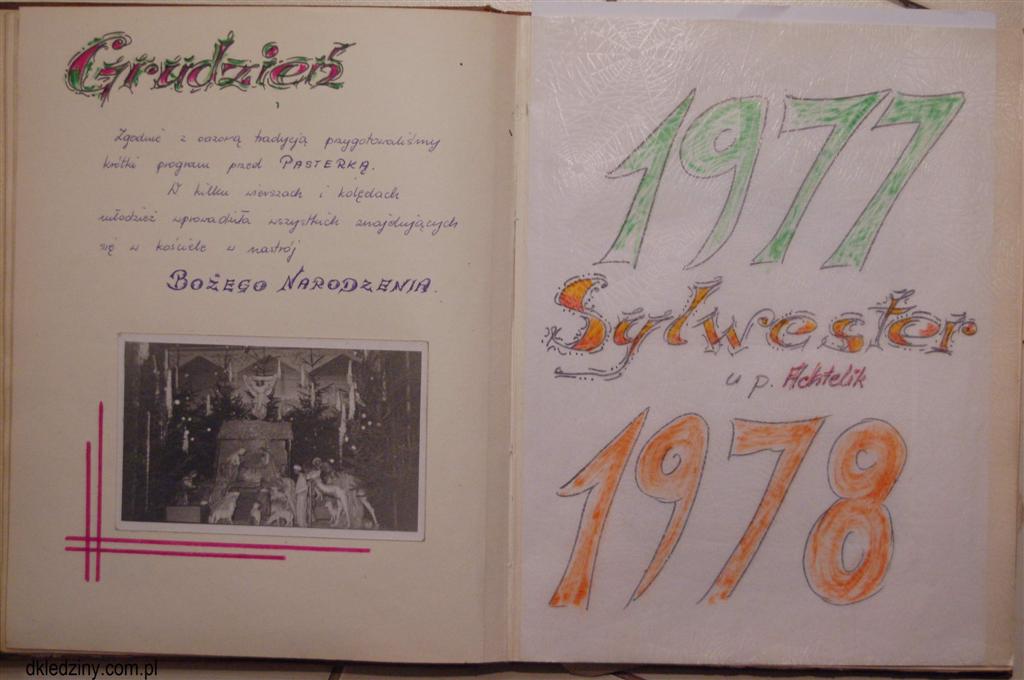 Grudzień
Zgodnie z oazową tradycją przygotowaliśmy
krótki program przed PASTERKĄ.
W kilku wierszach i kolędach
młodzież wprowadziła wszystkich znajdujących
się w kościele w nastrój
BOŻEGO NARODZENIA.
1977
Sylwester
u p. Achtelik
1978
dkledziny.com.pl